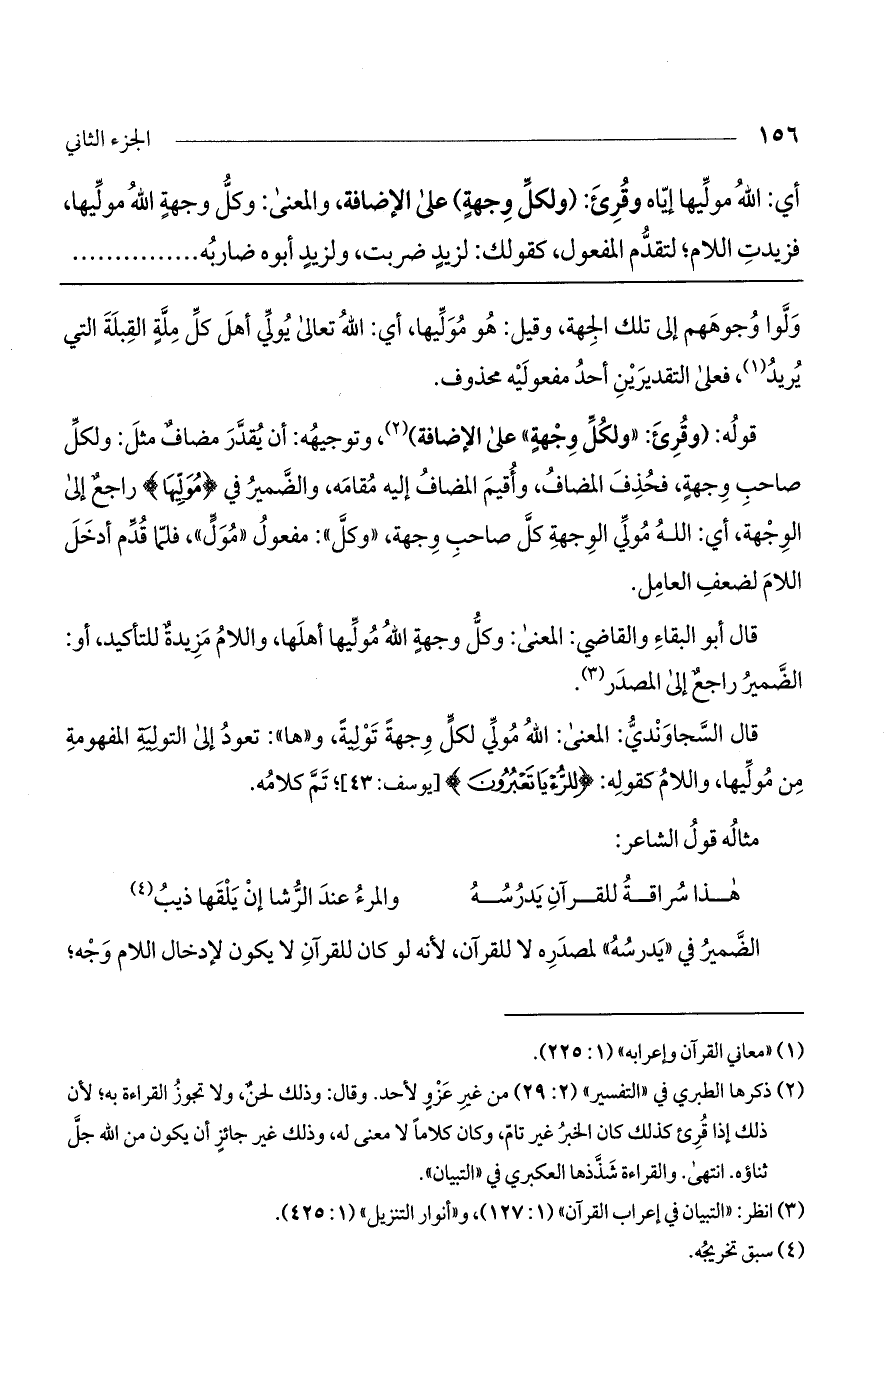 ١٥٦ الجزء الثاني
أي: اللهُ مولِّيها إيّاه وقُرِئَ: (ولكلِّ وِجهةٍ) علىٰ الإضافة، والمعنىٰ: وكلُّ وجهةٍ اللهُ مولِّيها،
فزيدتِ اللام؛ لتقدُّم المفعول، كقولك: لزيدٍ ضربت، ولزيدٍ أبوه ضاربُه...............
وَلَّوا وُجوهَهم إلى تلك الجهة، وقيل: هُو مُوَلِّيها، أي: اللهُ تعالىٰ يُولِّي أهلَ كلِّ مِلَّةٍ القِبلَةَ التي
يُريدُ(١)، فعلىٰ التقديرَيْنِ أحدُ مفعولَيْه محذوف.
قولُه: (وقُرِئَ: «ولكُلِّ وِجْهةٍ» علىٰ الإضافة)(٢)، وتوجيهُه: أن يُقدَّرَ مضافٌ مثلَ: ولكلِّ
صاحبِ وِجهةٍ، فحُذِفَ المضافُ، وأُقيمَ المضافُ إليه مُقامَه، والضَّميرُ في ﴿مُوَلِّيهَا﴾ راجعٌ إلىٰ
الوِجْهة، أي: اللهُ مُولِّي الوِجهةِ كلَّ صاحبِ وِجهة، «وكلَّ»: مفعولُ «مُوَلٍّ»، فلمّا قُدِّم أدخَلَ
اللامَ لضعفِ العامِل.
قال أبو البقاءِ والقاضي: المعنىٰ: وكلُّ وجهةٍ اللهُ مُولِّيها أهلَها، واللامُ مَزيدةٌ للتأكيد، أو:
الضَّميرُ راجعٌ إلىٰ المصدَر(٣).
قال السَّجاوَنْديُّ: المعنىٰ: اللهُ مُولِّي لكلٍّ وِجهةً تَوْلِيةً، و«ها»: تعودُ إلىٰ التولِيَةِ المفهومةِ
مِن مُولِّيها، واللامُ كقولِه: ﴿لِلرُّءْيَا تَعْبُرُونَ﴾ [يوسف: ٤٣]؛ تَمَّ كلامُه.
مثالُه قولُ الشاعر:
هٰـذا سُراقـةُ للقـرآنِ يَدرُسُـهُ والمرءُ عندَ الرُّشا إنْ يَلْقَها ذيبُ(٤)
الضَّميرُ في «يَدرسُهُ» لمصدَرِه لا للقرآن، لأنه لو كان للقرآنِ لا يكون لإدخال اللام وَجْه؛
(١) «معاني القرآن وإعرابه» (١: ٢٢٥).
(٢) ذكرها الطبري في «التفسير» (٢: ٢٩) من غيرِ عَزْوٍ لأحد. وقال: وذلك لحنٌ، ولا تجوزُ القراءة به؛ لأن
ذلك إذا قُرِئ كذلك كان الخبرُ غير تامّ، وكان كلاماً لا معنى له، وذلك غير جائزٍ أن يكون من الله جلَّ
ثناؤه. انتهىٰ. والقراءة شَذَّذها العكبري في «التبيان».
(٣) انظر: «التبيان في إعراب القرآن» (١: ١٢٧)، و«أنوار التنزيل» (١: ٤٢٥).
(٤) سبق تخريجُه.